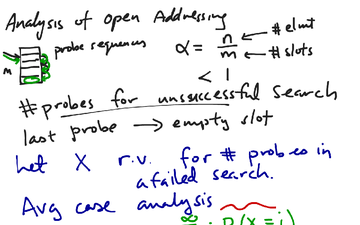 Analysis of Open Addressing
probe sequences
α = n/m ← # elmt
← # slots
m
< 1
# probes for unsuccessful search
last probe → empty slot
Let X r.v. for # probes in
a failed search.
Avg case analysis
∞ i · P(X = i)